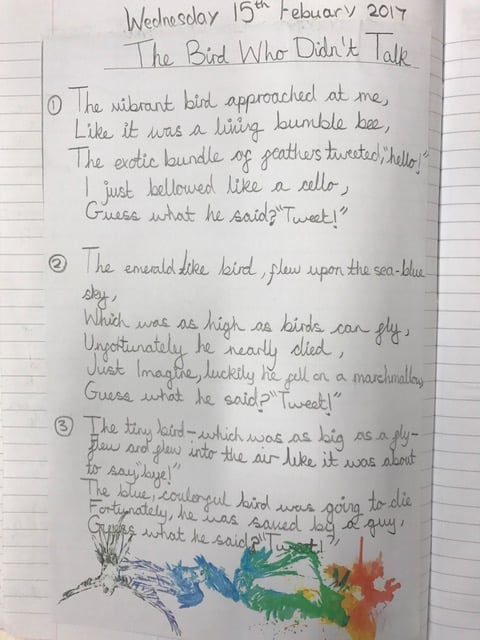 Wednesday 15th Febuary 2017
The Bird Who Didn't Talk
① The vibrant bird approached at me,
Like it was a living bumble bee,
The exotic bundle of feathers tweeted,"hello!"
I just bellowed like a cello,
Guess what he said?"Tweet!"
② The emerald like bird, flew upon the sea-blue
sky,
Which was as high as birds can fly,
Unfortunately he nearly died,
Just Imagine, luckily he fell on a marshmallow
Guess what he said?"Tweet!"
③ The tiny bird-which was as big as a fly-
flew and flew into the air like it was about
to say,"bye!"
The blue, coulorful bird was going to die
Fortunately, he was saved by a guy,
Guess what he said?"Tweet!"